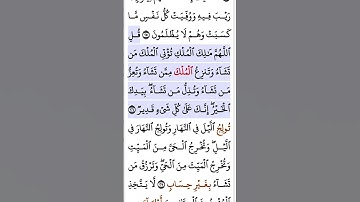 رَيْبَ فِيهِ وَوُفِّيَتْ كُلُّ نَفْسٍ مَّا
كَسَبَتْ وَهُمْ لَا يُظْلَمُونَ ۝ قُلِ
ٱللَّهُمَّ مَٰلِكَ ٱلْمُلْكِ تُؤْتِى ٱلْمُلْكَ مَن
تَشَآءُ وَتَنزِعُ ٱلْمُلْكَ مِمَّن تَشَآءُ وَتُعِزُّ
مَن تَشَآءُ وَتُذِلُّ مَن تَشَآءُ ۖ بِيَدِكَ
ٱلْخَيْرُ ۖ إِنَّكَ عَلَىٰ كُلِّ شَىْءٍ قَدِيرٌ ۝
تُولِجُ ٱلَّيْلَ فِى ٱلنَّهَارِ وَتُولِجُ ٱلنَّهَارَ فِى
ٱلَّيْلِ ۖ وَتُخْرِجُ ٱلْحَىَّ مِنَ ٱلْمَيِّتِ
وَتُخْرِجُ ٱلْمَيِّتَ مِنَ ٱلْحَىِّ ۖ وَتَرْزُقُ مَن
تَشَآءُ بِغَيْرِ حِسَابٍ ۝ لَّا يَتَّخِذِ